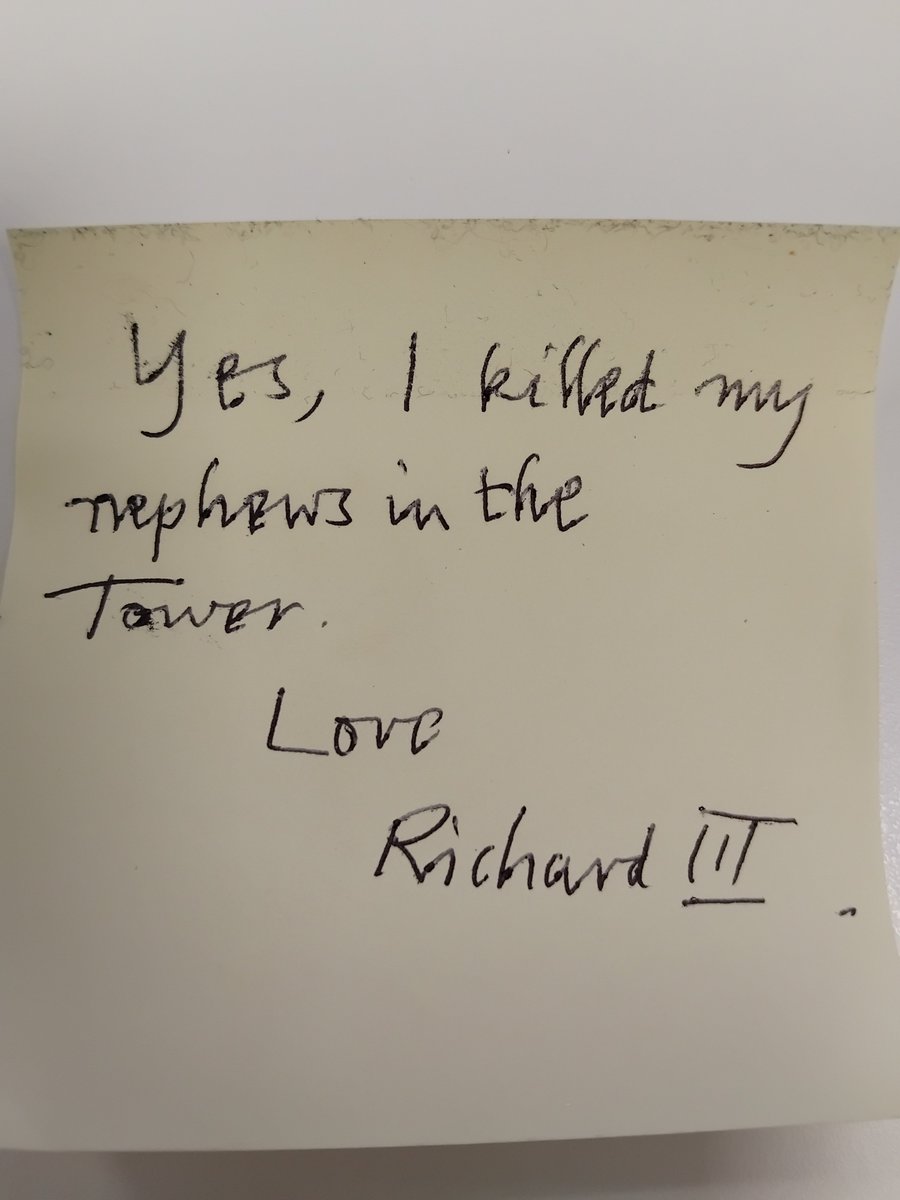 Yes, I killed my
nephews in the
Tower.
Love
Richard III.